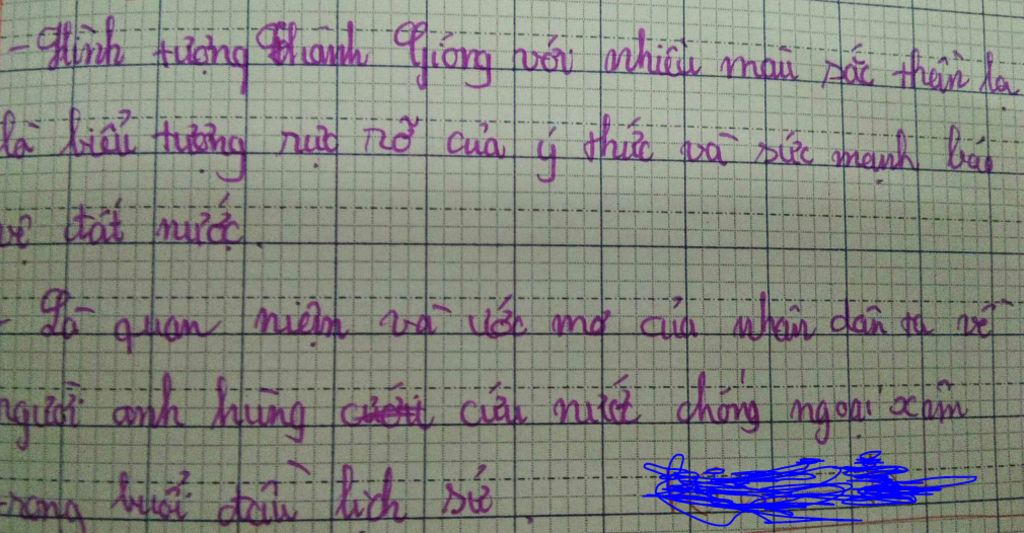 - Hình tượng Thánh Gióng với nhiều màu sắc thần lạ
là biểu tượng rực rỡ của ý thức và sức mạnh bảo
vệ đất nước.
- Là quan niệm và ước mơ của nhân dân ta về
người anh hùng cứu nước chống ngoại xâm
trong buổi đầu lịch sử.